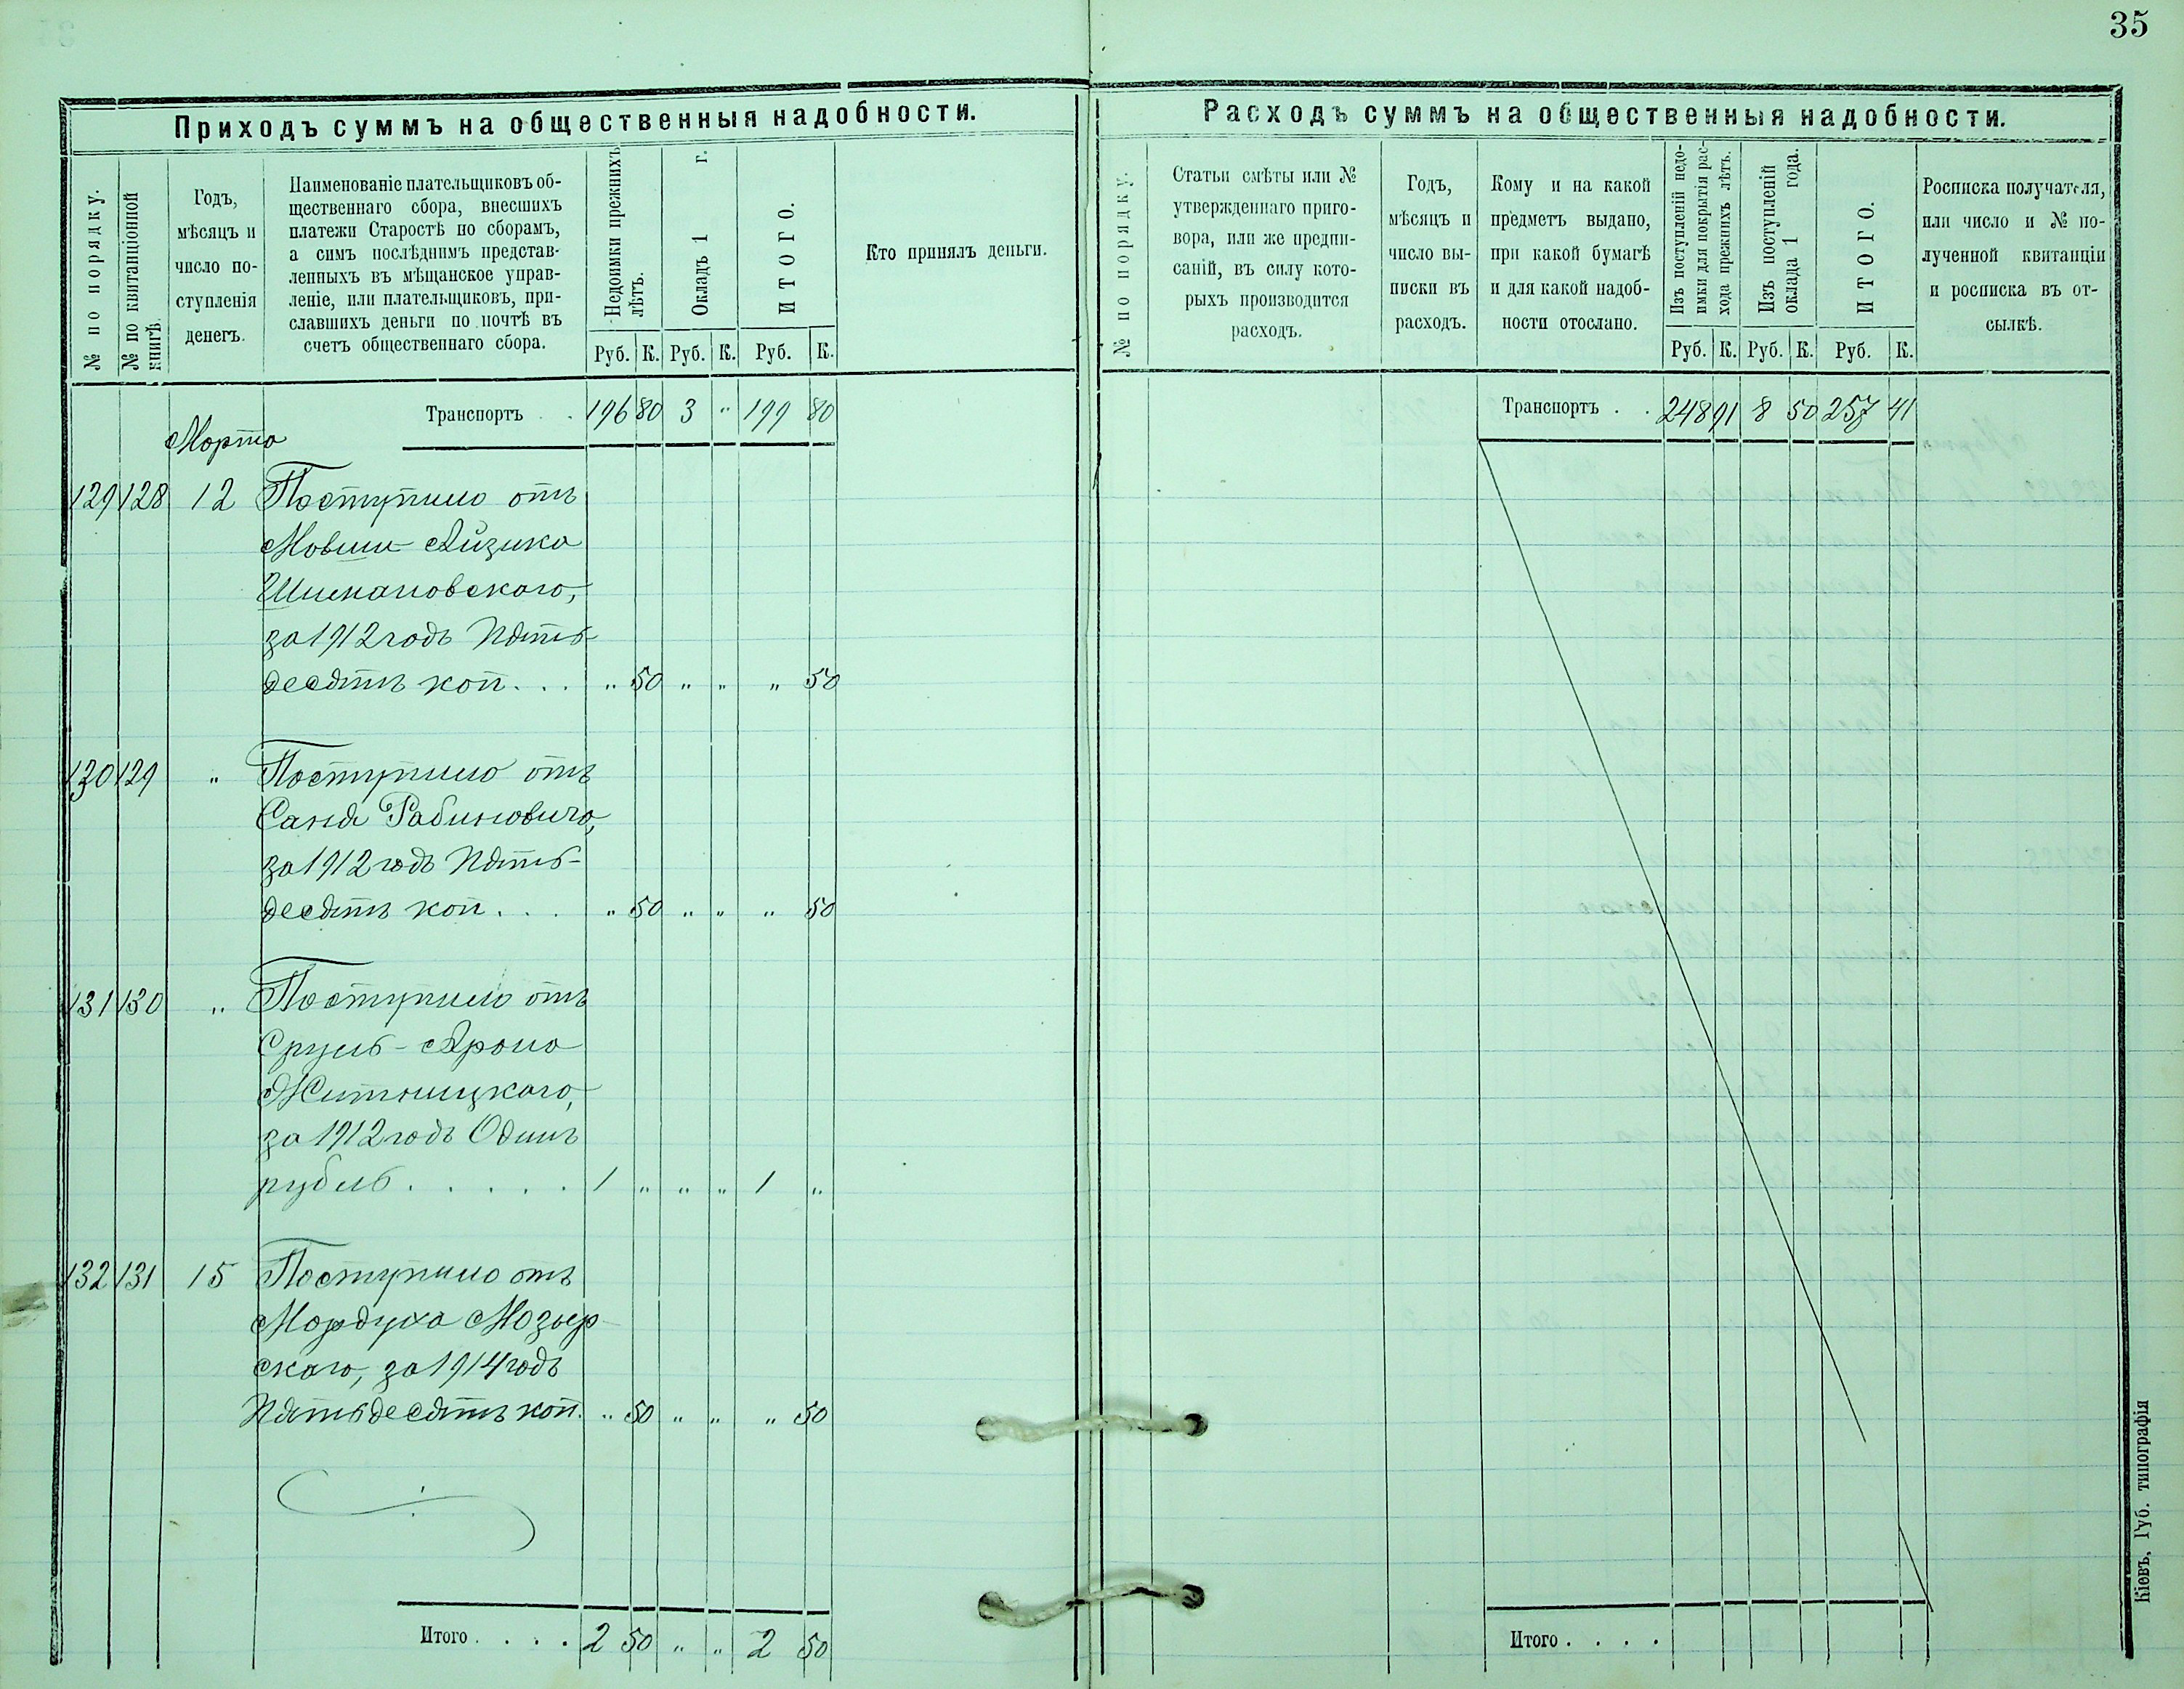 35
Приходъ суммъ на общественныя надобности.
№ по порядку.
№ по квитанціонной
книгѣ.
Годъ,
мѣсяцъ и
число по-
ступленія
денегъ.
Наименованіе плательщиковъ об-
щественнаго сбора, внесшихъ
платежи Старостѣ по сборамъ,
а симъ послѣднимъ представ-
ленныхъ въ мѣщанское управ-
леніе, или плательщиковъ, при-
славшихъ деньги по почтѣ въ
счетъ общественнаго сбора.
Недоимки прежнихъ
лѣтъ.
Окладъ 1 г.
ИТОГО.
Руб. К. Руб. К. Руб. К.
Кто принялъ деньги.
Транспортъ . . 196 80 3 " 199 80
Марта
129 128 12 Поступило отъ
Мовши Айзика
Шимановскаго,
за 1912 годъ Пять-
десятъ коп. . . " 50 " " " 50
130 129 " Поступило отъ
Саня Рабиновича,
за 1912 годъ Пять-
десятъ коп. . . " 50 " " " 50
131 130 " Поступило отъ
Сруль-Арона
Житницкаго,
за 1912 годъ Одинъ
рубль . . . . . 1 " " " 1 "
132 131 15 Поступило отъ
Мордуха Мозыр-
скаго, за 1914 годъ
Пятьдесятъ коп. " 50 " " " 50
Итого . . . . 2 50 " " 2 50
Расходъ суммъ на общественныя надобности.
№ по порядку.
Статьи смѣты или №
утвержденнаго приго-
вора, или же предпи-
саній, въ силу кото-
рыхъ производится
расходъ.
Годъ,
мѣсяцъ и
число вы-
писки въ
расходъ.
Кому и на какой
предметъ выдано,
при какой бумагѣ
и для какой надоб-
ности отослано.
Изъ поступленій недо-
имки для покрытія рас-
хода прежнихъ лѣтъ.
Изъ поступленій
оклада 1 года.
ИТОГО.
Руб. К. Руб. К. Руб. К.
Росписка получателя,
или число и № по-
лученной квитанціи
и росписка въ от-
сылкѣ.
Транспортъ . . 248 91 8 50 257 41
Итого . . . .
Кіевъ, Губ. типографія